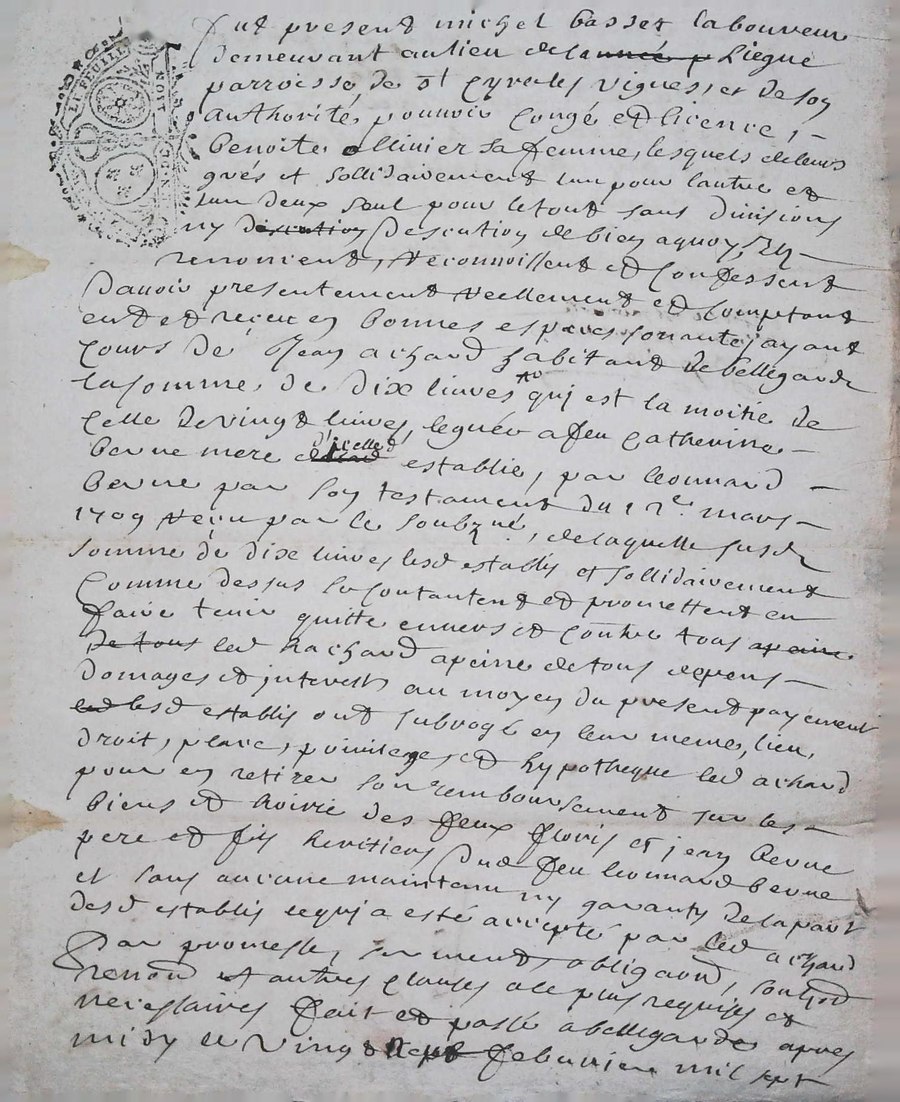 LE FEUILLE
Fut present michel basset laboureur
demeurant au lieu de la Liegue
parroisse de st Cyr les vignes, et de son
authorité, pouvoir congé et licence,
benoite ollinier sa femme, lesquels de leurs
grés et sollidairement lun pour lautre et
lun deux seul pour le tout sans divisions
ny discution de bien aquoy
renoncent, reconnoissent et confessent
davoir presentement reellement et comptant
eut et reçeu en bonnes especes sonante, ayant
cours de Jean achard habitant de bellegarde
la somme, de dix livres qui est la moitié de
celle de vingt livres, leguée a feu catherine
berne mere d'icelle establie, par leonnard
berne par son testament du 12e. mars
1709 reçu par le soubzné, de laquelle susd
somme de dix livres lesd establis et sollidairement
comme dessus se contantent et promettent en
faire tenir quitte envers et contre tous a peine
de tous led hachard a peine de tous depens
domages et interests au moyen du present payement
lesd establis ont subrogé en leur meme, lieu,
droit, place, privileges et hypotheque led achard
pour en retirer son remboursement sur les
biens et hoirie des feux floris et jean berne
pere et fils heritiers dud feu leonnard berne
et sans aucune maintenue ny garanty de la part
desd establis ce qui a esté accepté par led achard
Par promesse, serment, obligaond, soubzd
renond et autres clauses ale plus requises et
necessaires fait et passé a bellegarde apres
midy le vingt sept febvrier mil sept